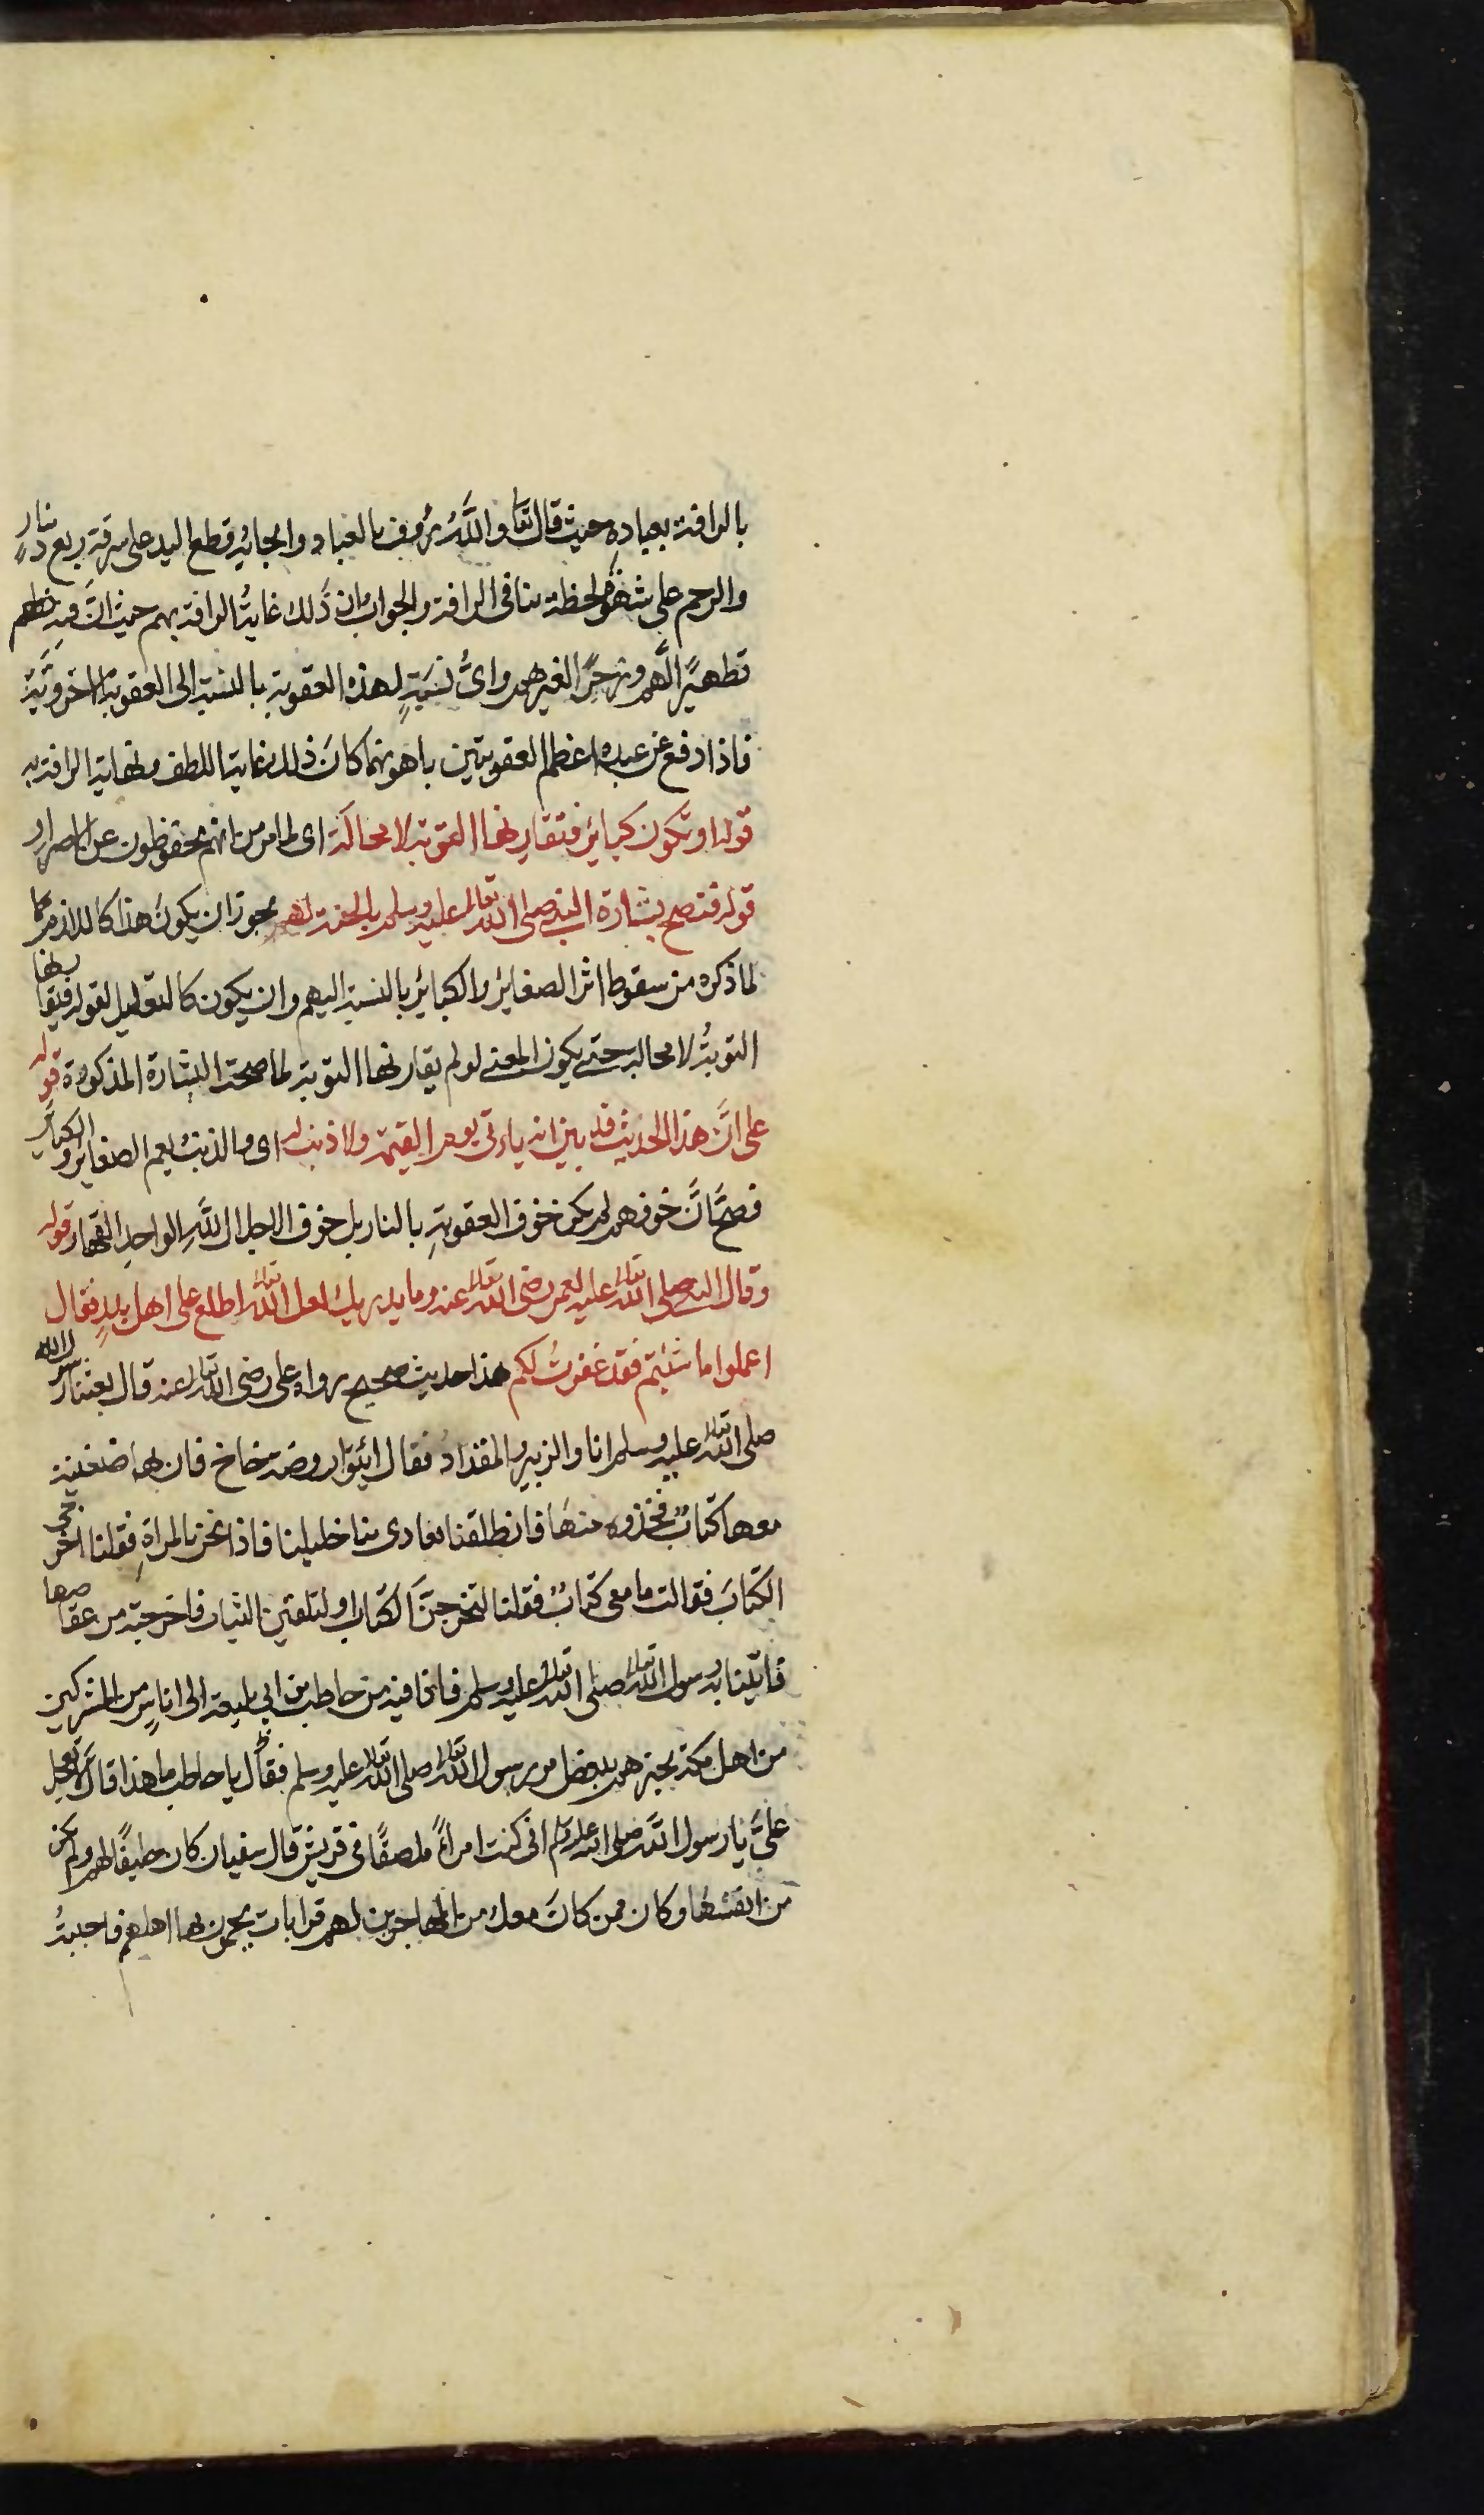 بالرافة بعباده حيث قال تعا واللّٰه رؤف بالعباد وايجابه قطع اليد على سرقة ربع دينار
والرجم على شهوة لحظة ينافى الرافة والجواب ان ذلك غاية الرافة بهم حيث انّ فيه
تطهيرًا لّهم وزجرًا لغيرهم واىّ نسبةٍ لهذه العقوبة بالنسبة الى العقوبة الاخرويّة
فاذا دفع عن عبده اعظم العقوبتين باهونهما كانَ ذلك غاية اللطف ونهاية الرافة به
قوله او تكون كبائر فتقارنها التوبة لا محالَة اى لما مر من انهم محفوظون عن الاصرار
قوله فتصح بشارة النبى صلى اللّٰه تعالى عليه وسلم بالجنة لهم يجوز ان يكونَ هذا كاللازم
لما ذكره من سقوط اثر الصغائر والكبائر بالنسبة اليهم وان يكون كالتعليل لقوله فتقارنها
التوبةُ لا محالة حتى يكون المعنى لو لم يقارنها التوبة لما صحت البشارة المذكورة قوله
على انَّ هذا الحديث قد بين انه ياءتى يوم القيٰمة ولا ذنب له اى والذنبُ يعم الصغائر والكبائر
فصحّ انَّ خوفهم لم يكن خوف العقوبةِ بالنار بل خوف الاجلال للَّهِ الواحدِ القهار قوله
وقال النبى صلى اللّٰه تعالى عليه لعمر رضى اللّٰه تعالى عنه وما يدريك لعل اللّٰه تعالى اطلع على اهل بدرٍ فقال
اعملوا ما شئتم فقد غفرتُ لكم هذا حديث صحيح رواه على رضى اللّٰه تعالى عنه قال بعثنا رسول اللّٰه
صلى اللّٰه تعالى عليه وسلم انا والزبير والمقداد فقال ائتوا روضة خاخ فان بها ضغينة
معها كتابٌ فخذوه منها فانطلقنا تعادى بنا خليلنا فاذا نحن بالمراةِ فقلنا اخرجى
الكتابَ فقالت ما معى كتابٌ فقلنا لتخرجنَّ الكتاب او لتلقين الثياب فاخرجته من عقاصها
فاتينا به رسول اللّٰه تعالى صلى اللّٰه تعالى عليه وسلم فاذا فيه من حاطب بن ابى بليعة الى اناسٍ من المشركين
من اهل مكة يخبرهم ببعض امر رسول اللّٰه تعالى صلى اللّٰه تعالى عليه وسلم فقال يا حاطب ما هذا قال لا تعجل
علىَّ يا رسول اللّٰه صلى اللّٰه عليه وسلم انى كنت امراءً ملصقًا فى قريش قال سفيان كان حليفًا لهم ولم يكن
من انفسها وكان ممن كانَ معك من المهاجرين لهم قرابات يحمون بها اهلهم فاحببتُ